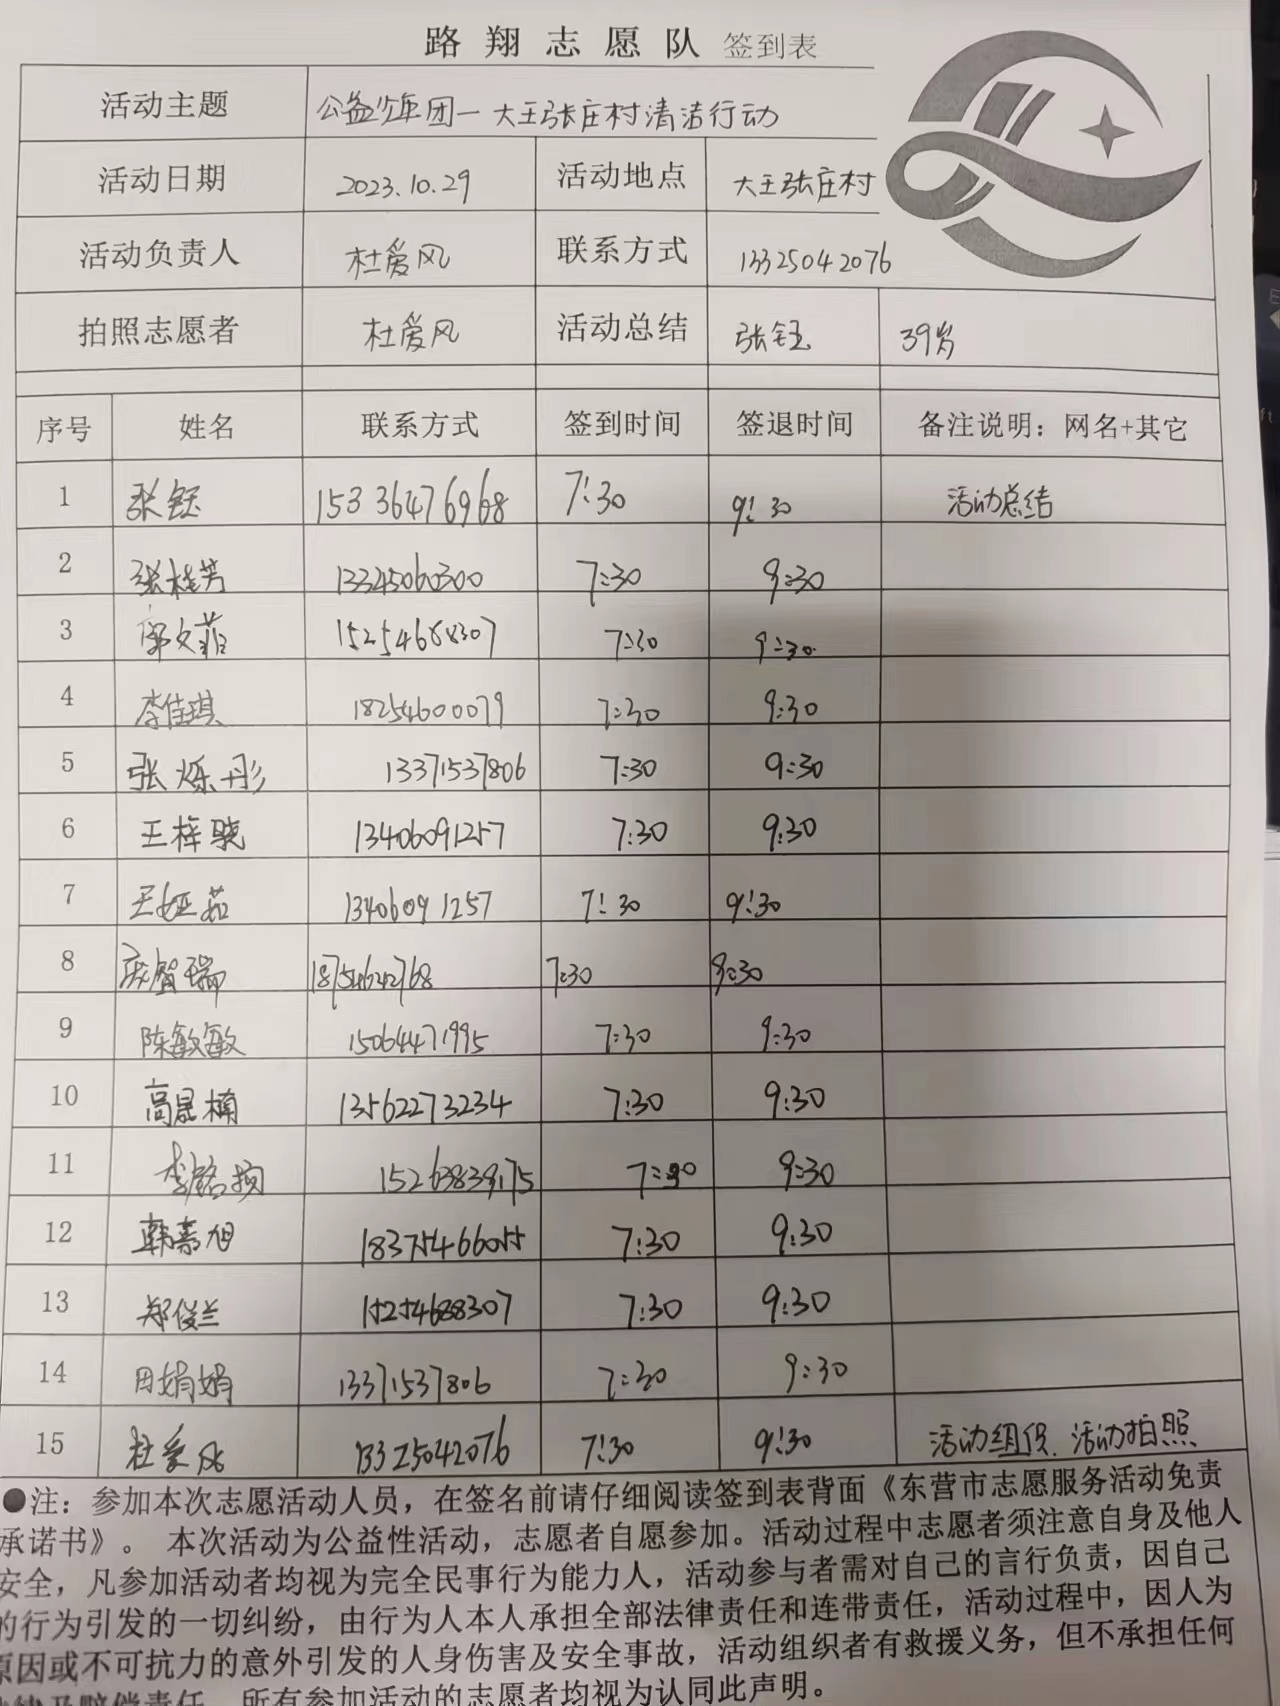 路翔志愿队 签到表
活动主题 公益少年团一大王张庄村清洁行动
活动日期 2023.10.29 活动地点 大王张庄村
活动负责人 杜爱风 联系方式 13325042076
拍照志愿者 杜爱风 活动总结 张钰 39岁
序号 姓名 联系方式 签到时间 签退时间 备注说明：网名+其它
1 张钰 15336476968 7:30 9:30 活动总结
2 张桂芳 13345060300 7:30 9:30
3 郭文菲 15254688307 7:30 9:30
4 李佳琪 18254600079 7:30 9:30
5 张烁彤 13371537806 7:30 9:30
6 王梓骁 13406091257 7:30 9:30
7 王娅茹 13406091257 7:30 9:30
8 贺瑞 18754642768 7:30 9:30
9 陈敏敏 15064471995 7:30 9:30
10 高晟楠 13562273234 7:30 9:30
11 李铭 15263839175 7:30 9:30
12 韩嘉旭 18375466055 7:30 9:30
13 郑俊兰 15254688307 7:30 9:30
14 田娟娟 13371537806 7:30 9:30
15 杜爱风 13325042076 7:30 9:30 活动组织、活动拍照
●注：参加本次志愿活动人员，在签名前请仔细阅读签到表背面《东营市志愿服务活动免责
承诺书》。 本次活动为公益性活动，志愿者自愿参加。活动过程中志愿者须注意自身及他人
安全，凡参加活动者均视为完全民事行为能力人，活动参与者需对自己的言行负责，因自己
的行为引发的一切纠纷，由行为人本人承担全部法律责任和连带责任，活动过程中，因人为
原因或不可抗力的意外引发的人身伤害及安全事故，活动组织者有救援义务，但不承担任何
法律及赔偿责任。所有参加活动的志愿者均视为认同此声明。